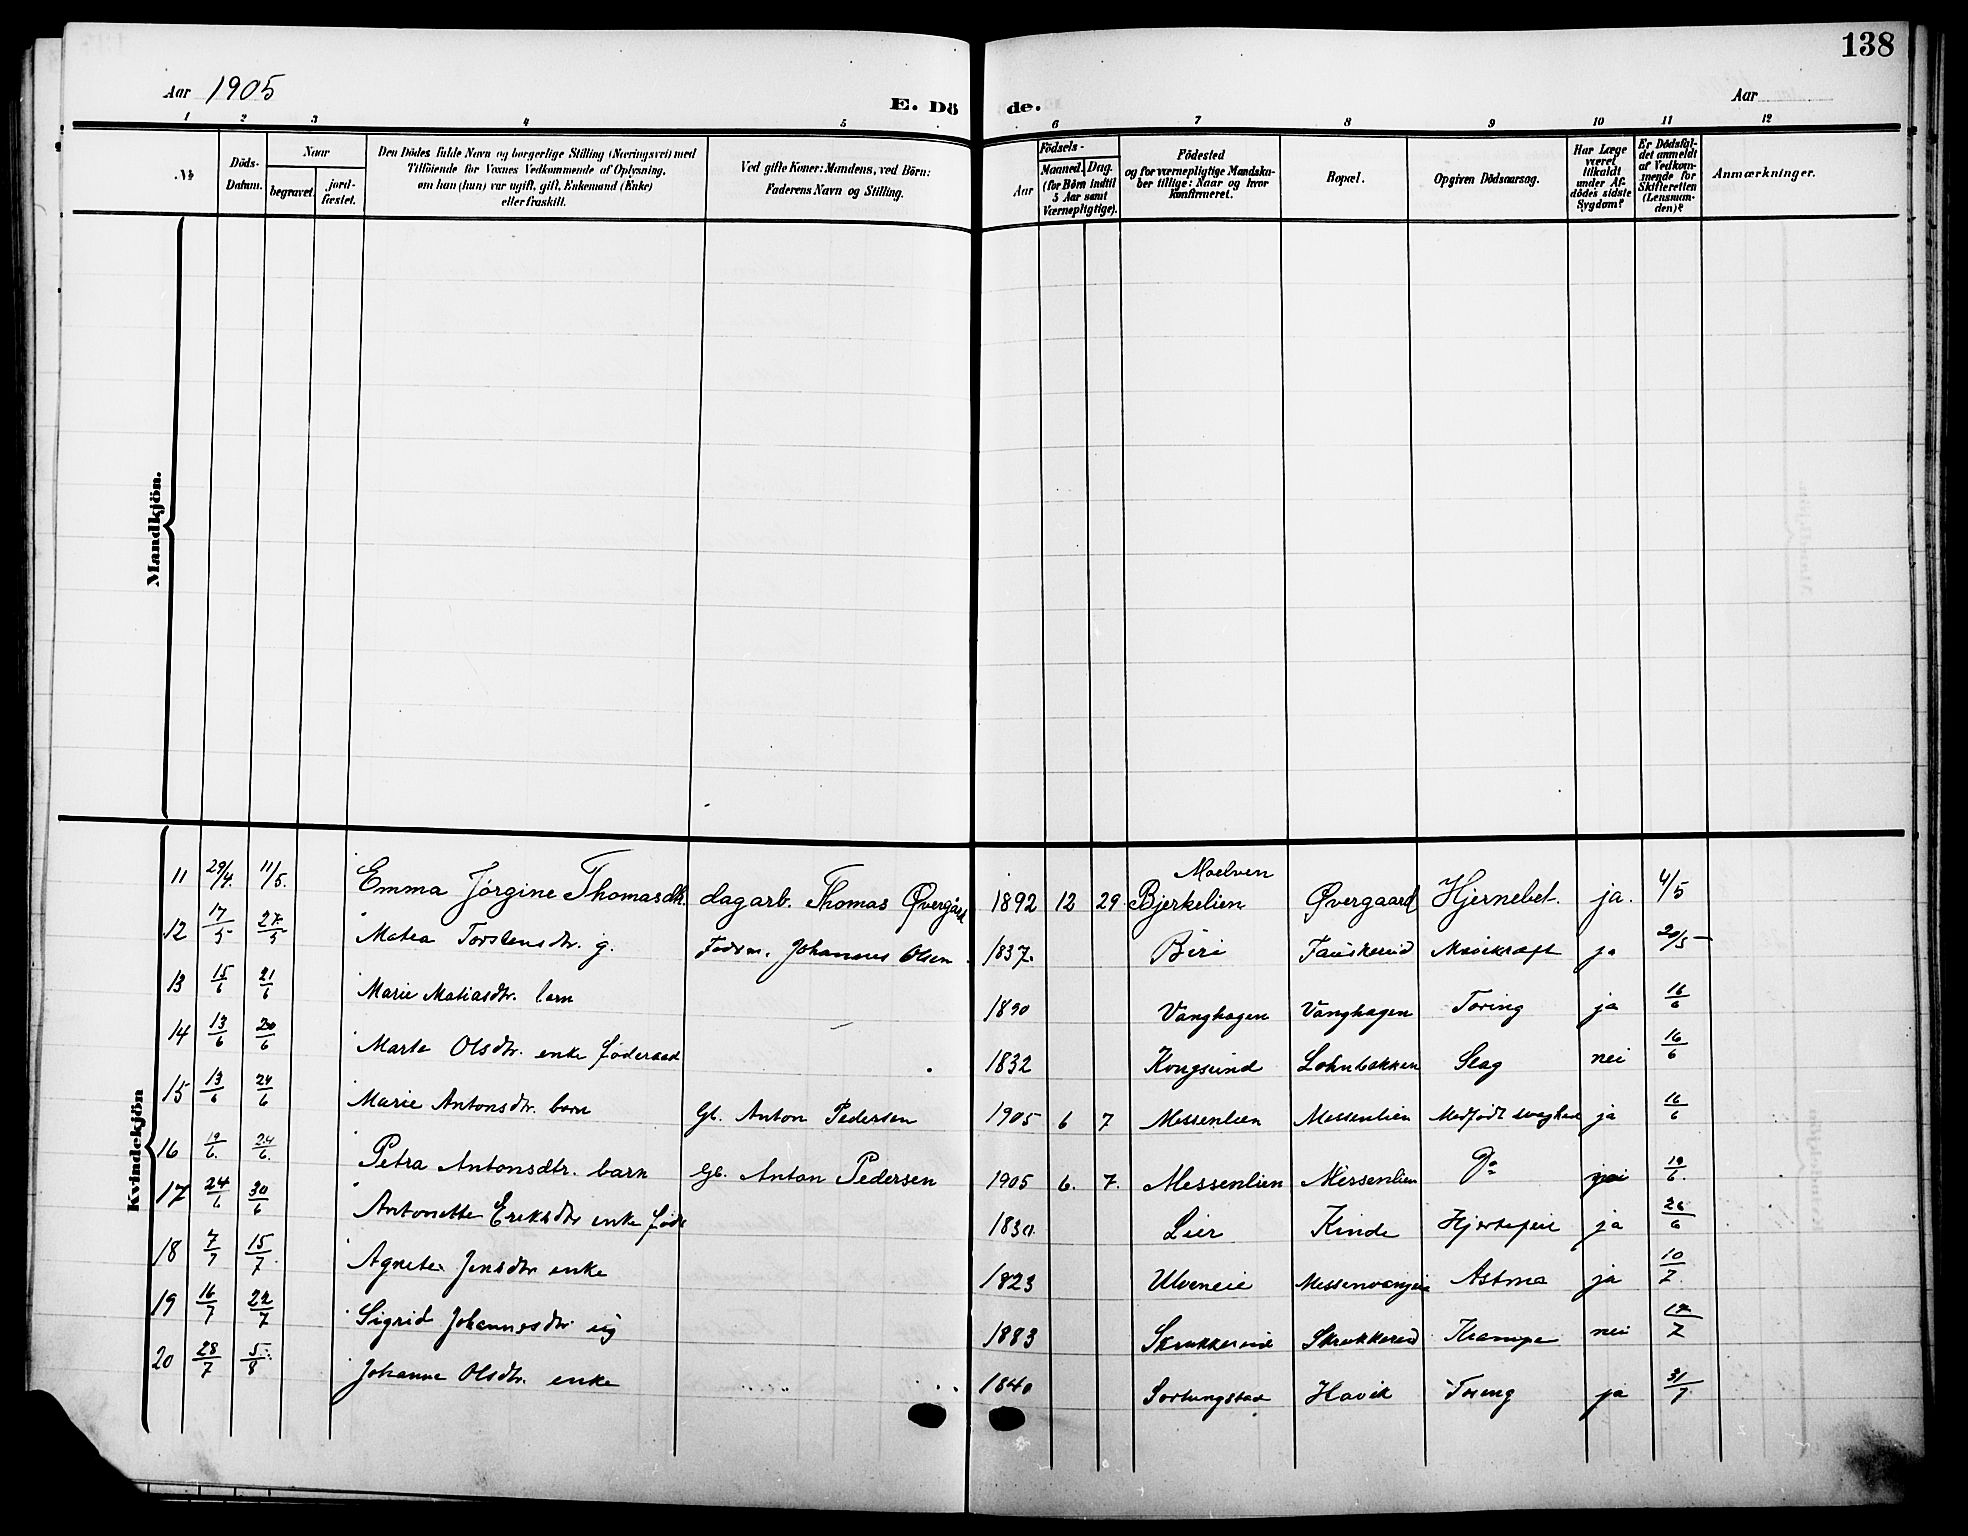 138
Aar 1905
E. Dö de.
Aar
1 2 3 4 5 6 7 8 9 10 11 12
№
Döds-Datum.
Naar
begravet.
jord-fæstet.
Den Dödes fulde Navn og borgerlige Stilling (Næringsvei) med
Tilföiende for Voxnes Vedkommende af Oplysning,
om han (hun) var ugift, gift, Enkemand (Enke)
eller fraskilt.
Ved gifte Koner: Mandens, ved Börn:
Faderens Navn og Stilling.
Födsels-
Aar
Maaned. Dag.
(for Börn indtil
5 Aar samt
Værnepligtige).
Födested
og for værnepligtige Mandska-
ber tillige: Naar og hvor
konfirmeret.
Bopæl.
Opgiven Dödsaarsag.
Har Læge
været
tilkaldt
under Af-
dødes sidste
Sygdom?
Er Dödsfal-
det anmeldt
af Vedkom-
mende for
Skifteretten
(Lensman-
den)?
Anmærkninger.
Mandkjön.
Kvindekjön
Moelven
11 29/4. 11/5. Emma Jörgine Thomasdtr. dagarb. Thomas Øvergård 1892 12 29. Bjerkelien Øvergaard Hjernebet. ja. 4/5
12 17/5 27/5 Matea Torstensdtr. g. Johannes Olsen 1837. Biri ja 20/5
13 15/6 21/6 Marie Matiasdtr. barn 1890 Vanghagen Vanghagen Tæring ja 16/6
14 13/6 20/6 Marte Olsdtr. enke föderaad 1832 Kongsund Slag nei 16/6
15 13/6 24/6 Marie Antonsdtr. barn Gb. Anton Pedersen 1905 6 7 Messenlien Messenlien Medfödt svaghed ja 16/6
16 19/6. 24/6. Petra Antonsdtr. barn Gb. Anton Pedersen 1905 6. 7. Messenlien Messenlien Do 19/6.
17 24/6 30/6 Antonette Eriksdtr enke föde 1830. Lier Kinde Hjertefeil ja 26/6
18 7/7 15/7. Agnete Jensdtr enke 1823 Ulveneie Astma ja 10/7.
19 16/7 22/7 Sigrid Johannesdtr ug 1883 Krampe nei 17/7
20 28/7 5/8 Johanne Olsdtr. enke 1840 Havik Tæring ja 31/7.